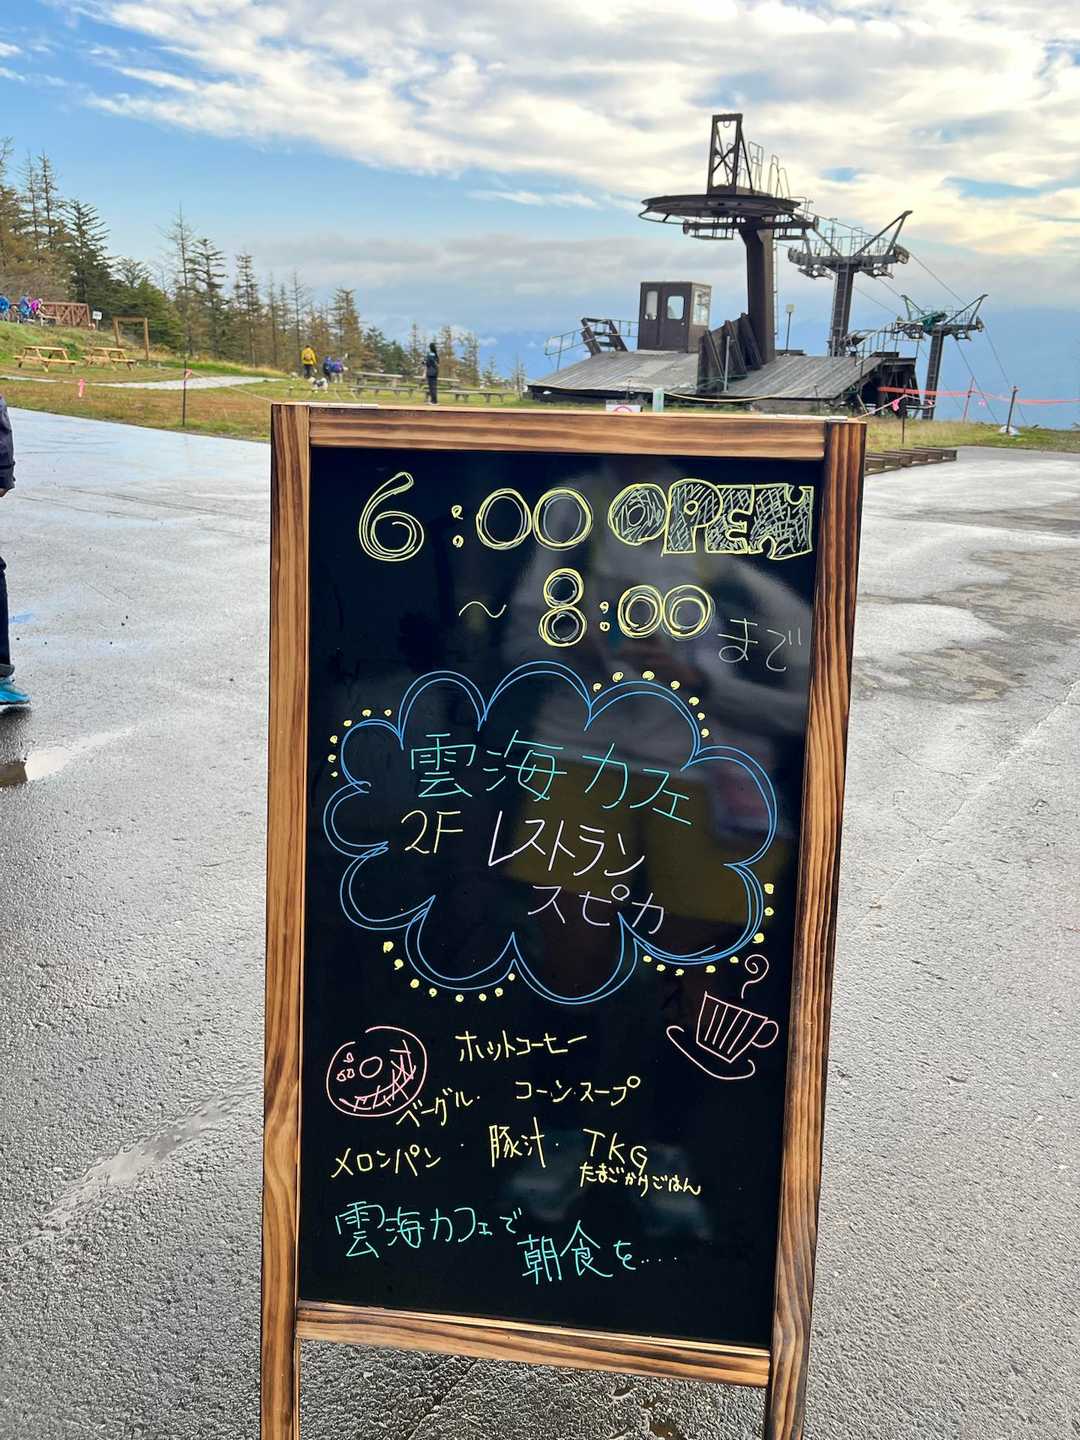 6:00 OPEN
～ 8:00 まで
雲海カフェ
2F レストラン
スピカ
ホットコーヒー
ベーグル・ コーンスープ
メロンパン ・ 豚汁・ TKG
たまごかけごはん
雲海カフェで
朝食を....